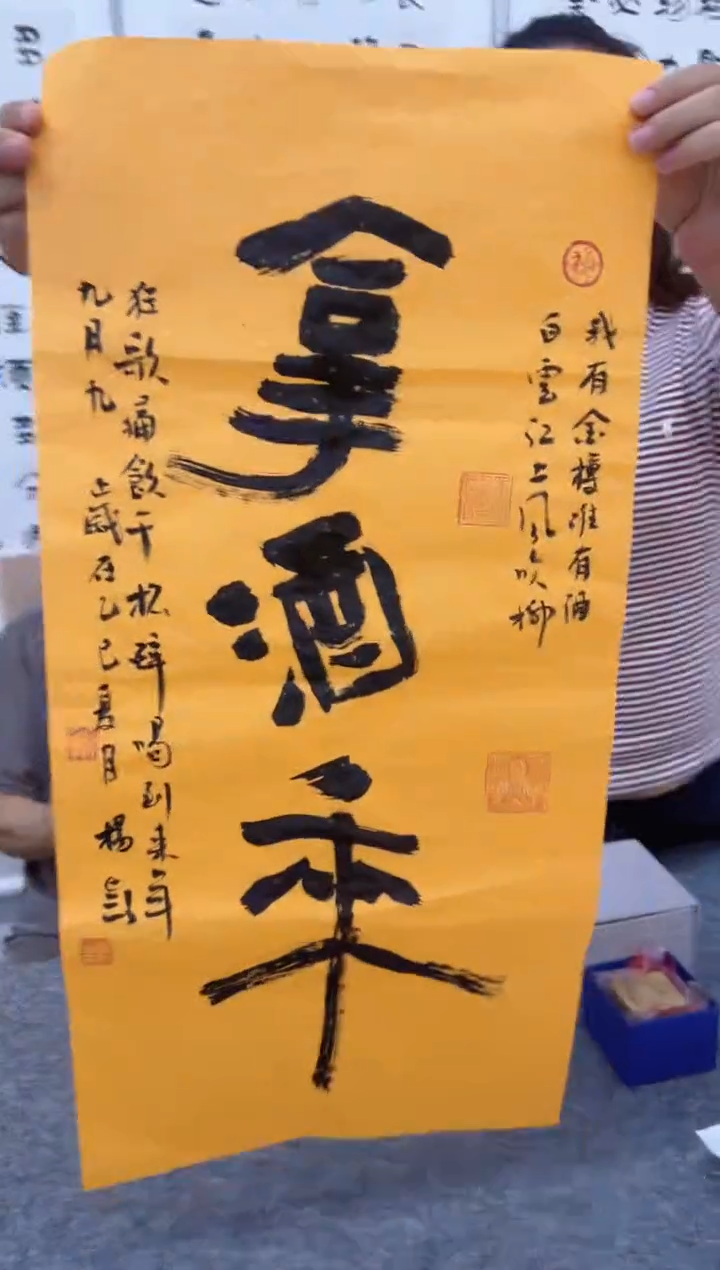 我有金樽谁有酒
白雲江上风吹柳
拿酒來
狂歌痛飲千杯醉喝到来年
九月九 歲在乙巳夏月 楊